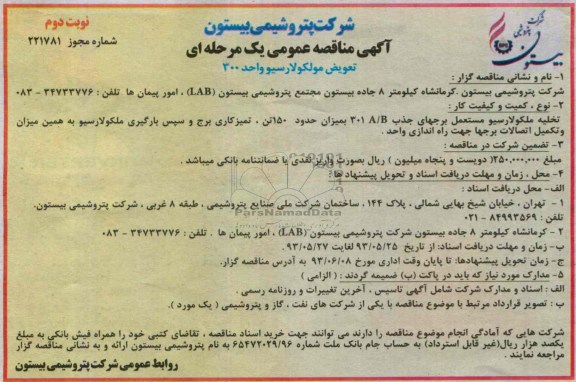 نوبت دوم
شماره مجوز ۲۲۱۷۸۱
شرکت پتروشیمی بیستون
آگهی مناقصه عمومی یک مرحله ای
تعویض مولکولارسیو واحد ۳۰۰
شرکت پتروشیمی
بیستون
۱- نام و نشانی مناقصه گزار :
شرکت پتروشیمی بیستون .کرمانشاه کیلومتر ۸ جاده بیستون مجتمع پتروشیمی بیستون (LAB) ، امور پیمان ها تلفن : ۳۴۷۳۳۷۷۶ - ۰۸۳
۲- نوع ، کمیت و کیفیت کار :
تخلیه ملکولارسیو مستعمل برجهای جذب ۳۰۱ A/B بمیزان حدود ۱۵۰تن ، تمیزکاری برج و سپس بارگیری ملکولارسیو به همین میزان
وتکمیل اتصالات برجها جهت راه اندازی واحد .
۳- تضمین شرکت در مناقصه :
مبلغ ۲۵۰.۰۰۰.۰۰۰( دویست و پنجاه میلیون ) ریال بصورت واریز نقدی یا ضمانتنامه بانکی میباشد .
۴- محل ، زمان و مهلت دریافت اسناد و تحویل پیشنهاد ها :
الف - محل دریافت اسناد :
۱ - تهران ، خیابان شیخ بهایی شمالی ، پلاک ۱۴۴، ساختمان شرکت ملی صنایع پتروشیمی ، طبقه ۸ غربی ، شرکت پتروشیمی بیستون.
تلفن : ۸۴۹۹۳۵۶۹ - ۰۲۱
۲ - کرمانشاه کیلومتر ۸ جاده بیستون شرکت پتروشیمی بیستون (LAB) ، امور پیمان ها . تلفن : ۳۴۷۳۳۷۷۶ - ۰۸۳
ب- زمان و مهلت دریافت اسناد: از تاریخ ۹۳/۰۵/۲۵ لغایت ۹۳/۰۵/۲۷.
ج- زمان تحویل پیشنهادها: تا پایان وقت اداری مورخ ۹۳/۰۶/۰۸ به آدرس مناقصه گزار.
۵- مدارک مورد نیاز که باید در پاکت (ب) ضمیمه گردند : ( الزامی )
الف : اسناد و مدارک شرکت شامل آگهی تاسیس ، آخرین تغییرات و روزنامه رسمی .
ب : تصویر قرارداد مرتبط با موضوع مناقصه با یکی از شرکت های نفت ، گاز و پتروشیمی ( یک مورد ).
شرکت هایی که آمادگی انجام موضوع مناقصه را دارند می توانند جهت خرید اسناد مناقصه ، تقاضای کتبی خود را همراه فیش بانکی به مبلغ
یکصد هزار ریال(غیر قابل استرداد) به حساب جام بانک ملت شماره ۶۵۴۷۲۰۲۹/۹۶ به نام پتروشیمی بیستون ارائه و به نشانی مناقصه گزار
مراجعه نمایند .
روابط عمومی شرکت پتروشیمی بیستون
ParsNamadData